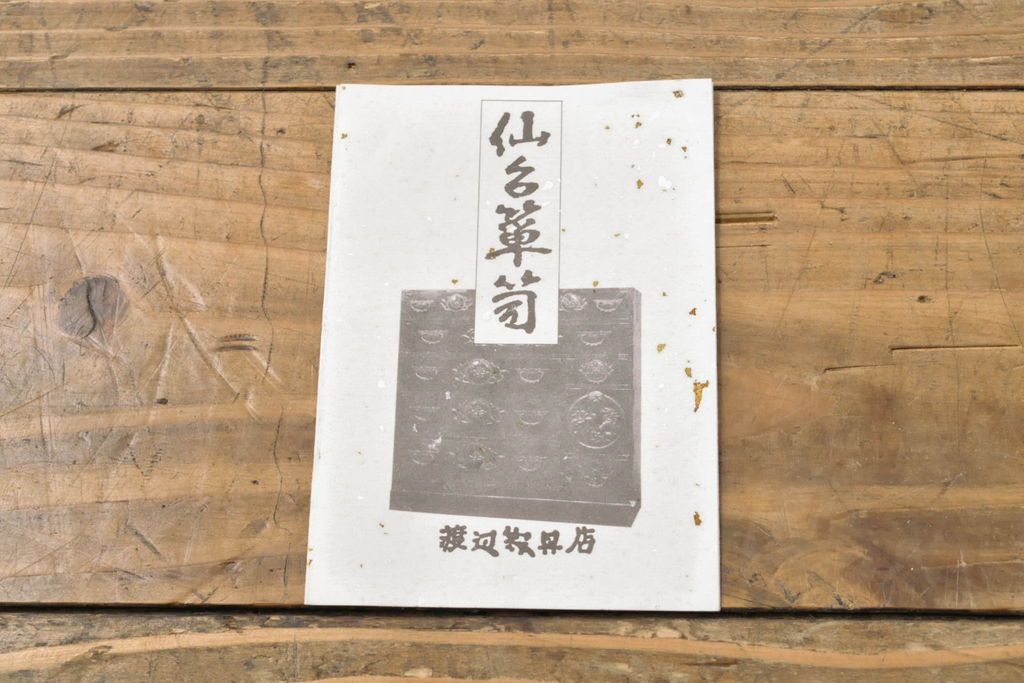 仙台箪笥
渡辺家具店